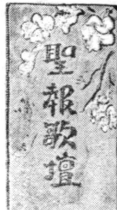 聖報歌壇